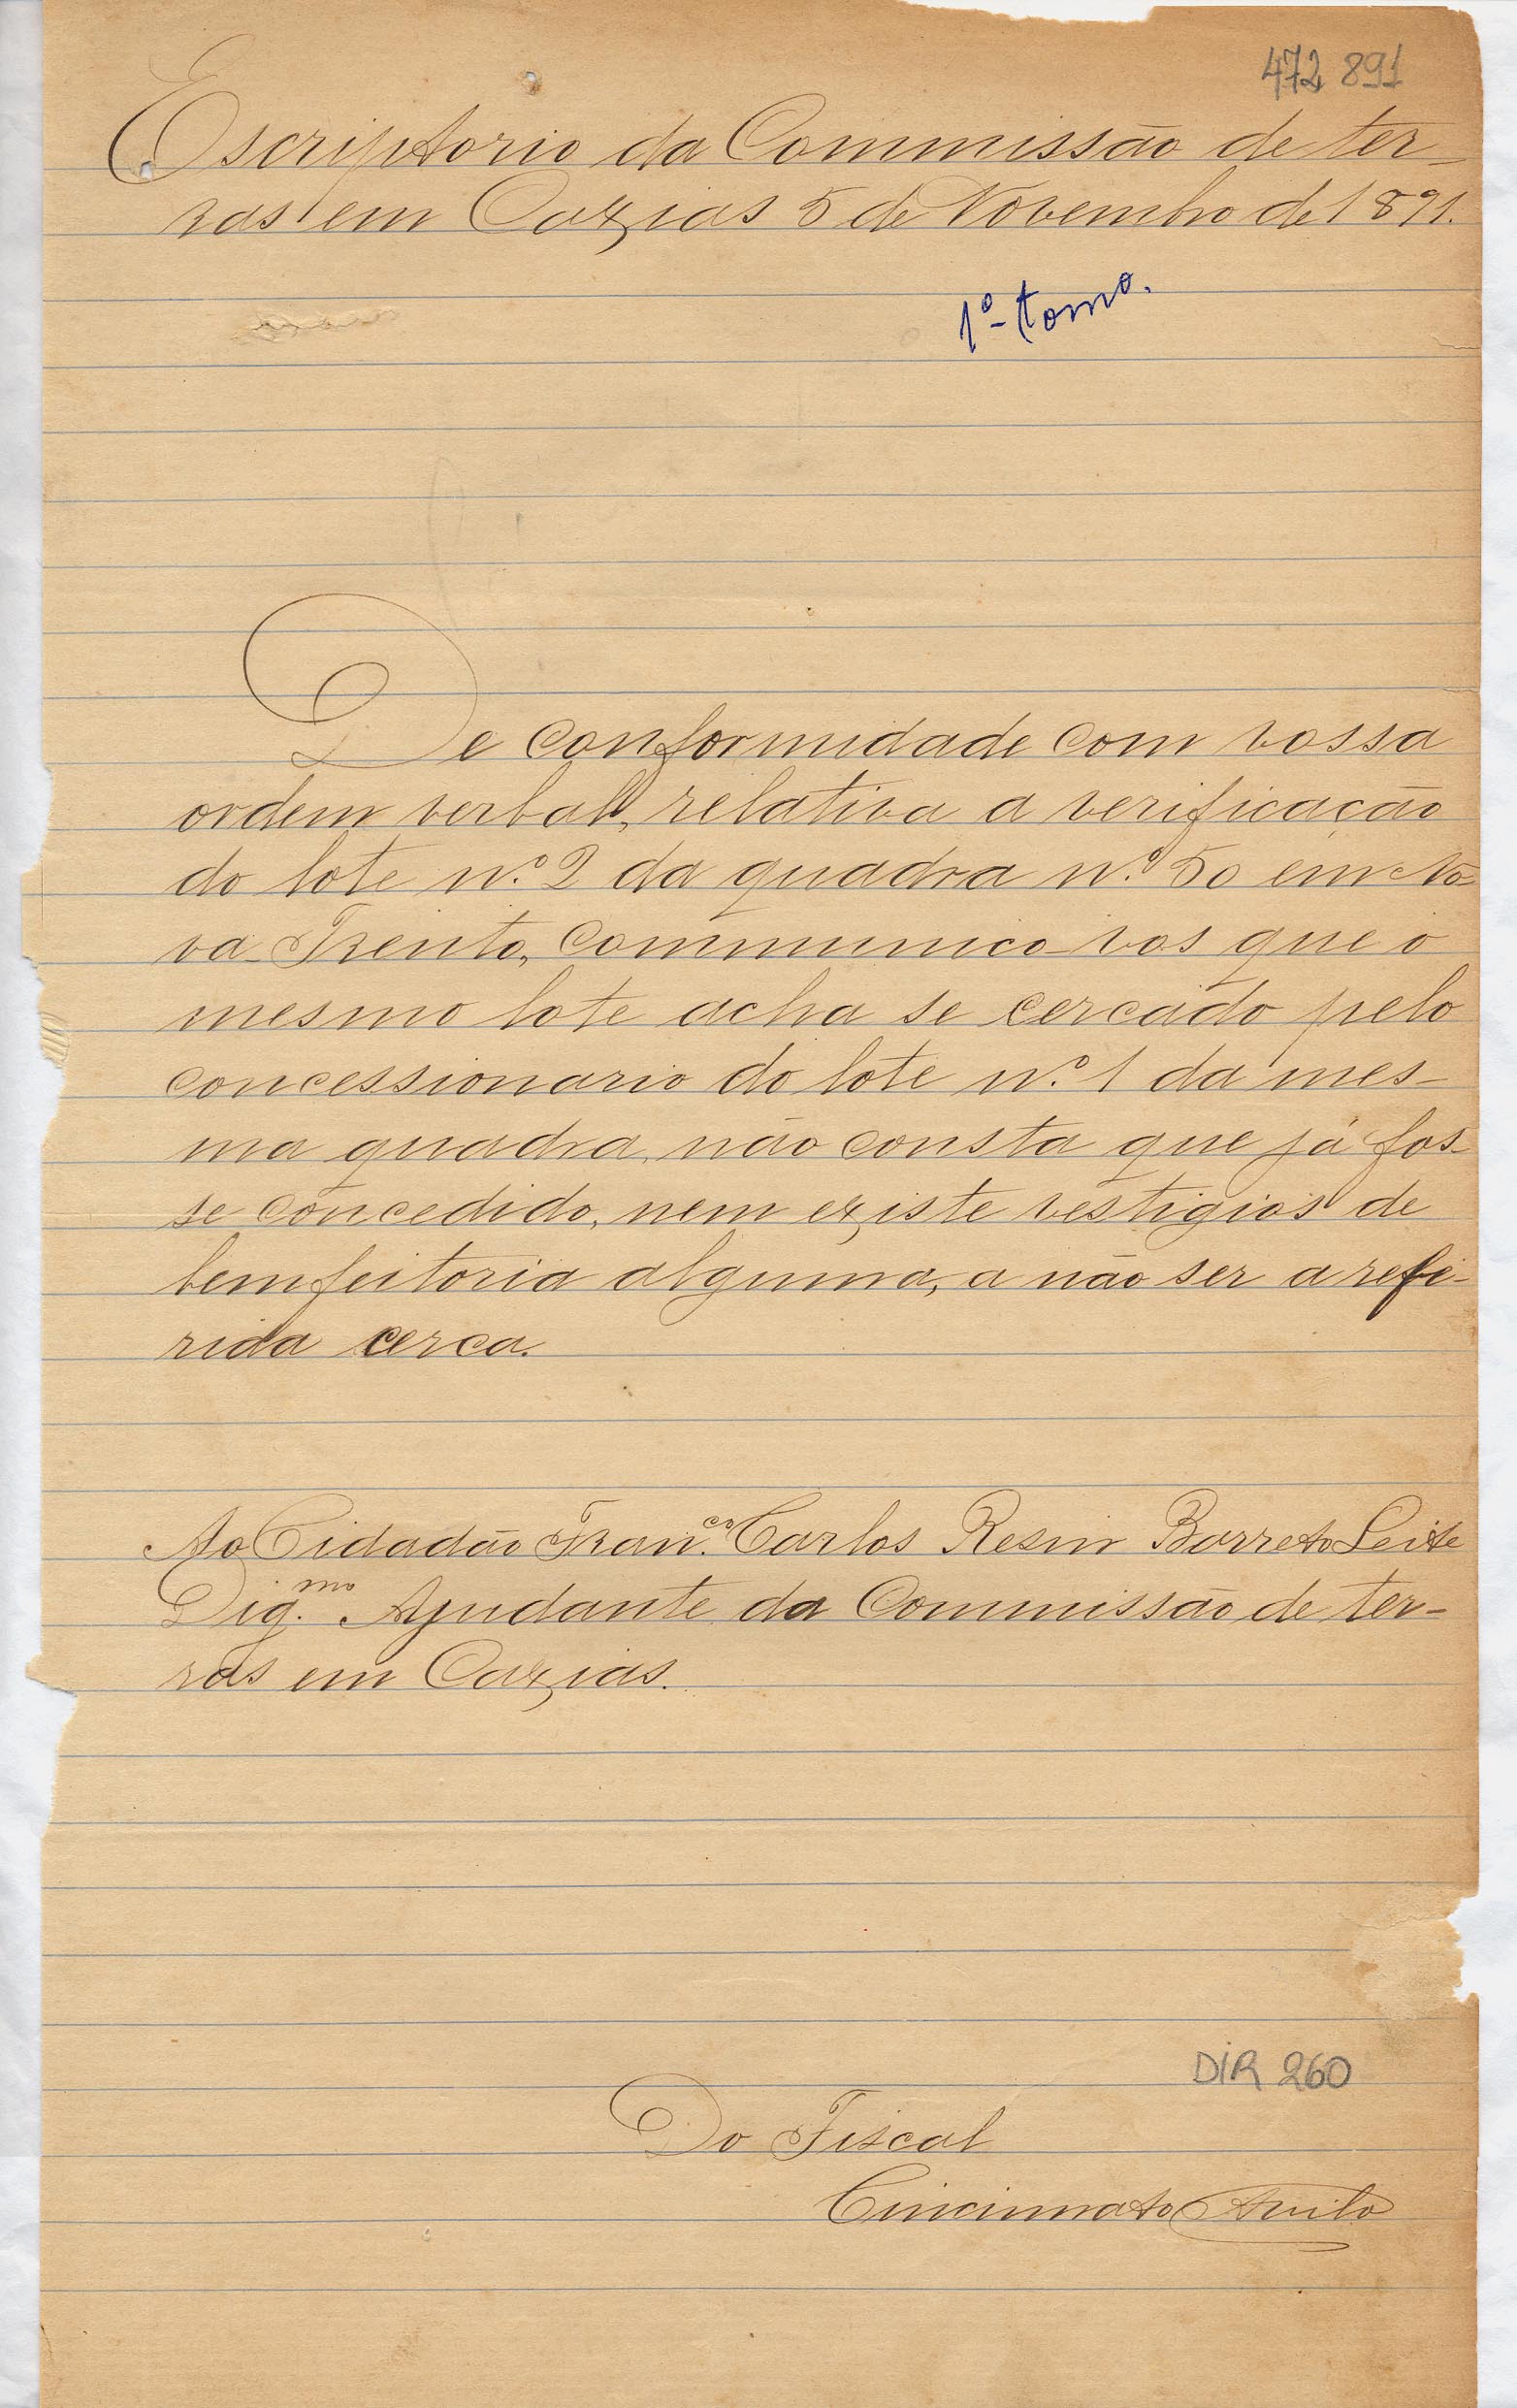 472 891
Escriptorio da Commissão de ter-
ras em Caxias 5 de Novembro de 1891.
1º- tomo.
De conformidade com vossa
ordem verbal, relativa a verificação
do lote n.º 2 da quadra n.º 50 em No-
va-Trento, communico-vos que o
mesmo lote acha se cercado pelo
concessionario do lote n.º 1 da mes-
ma quadra, não consta que já fos-
se concedido, nem existe vestigios de
bemfeitoria alguma, a não ser a refe-
rida cerca.
Ao Cidadão Fran.co Carlos Resin Barreto Leite
Dig.mo Ajudante da Commissão de ter-
ras em Caxias.
DIR 260
Do Fiscal
Cincinnato Avila